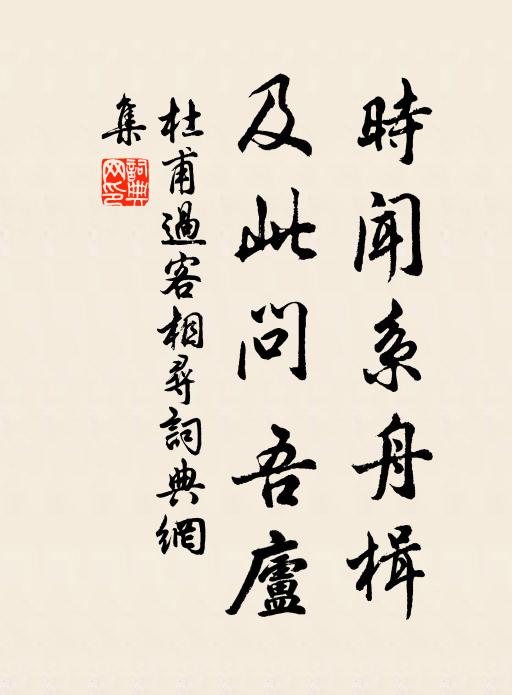 時聞系舟楫
及此問吾廬
杜甫過客相尋詞典網
集
詞典
网印